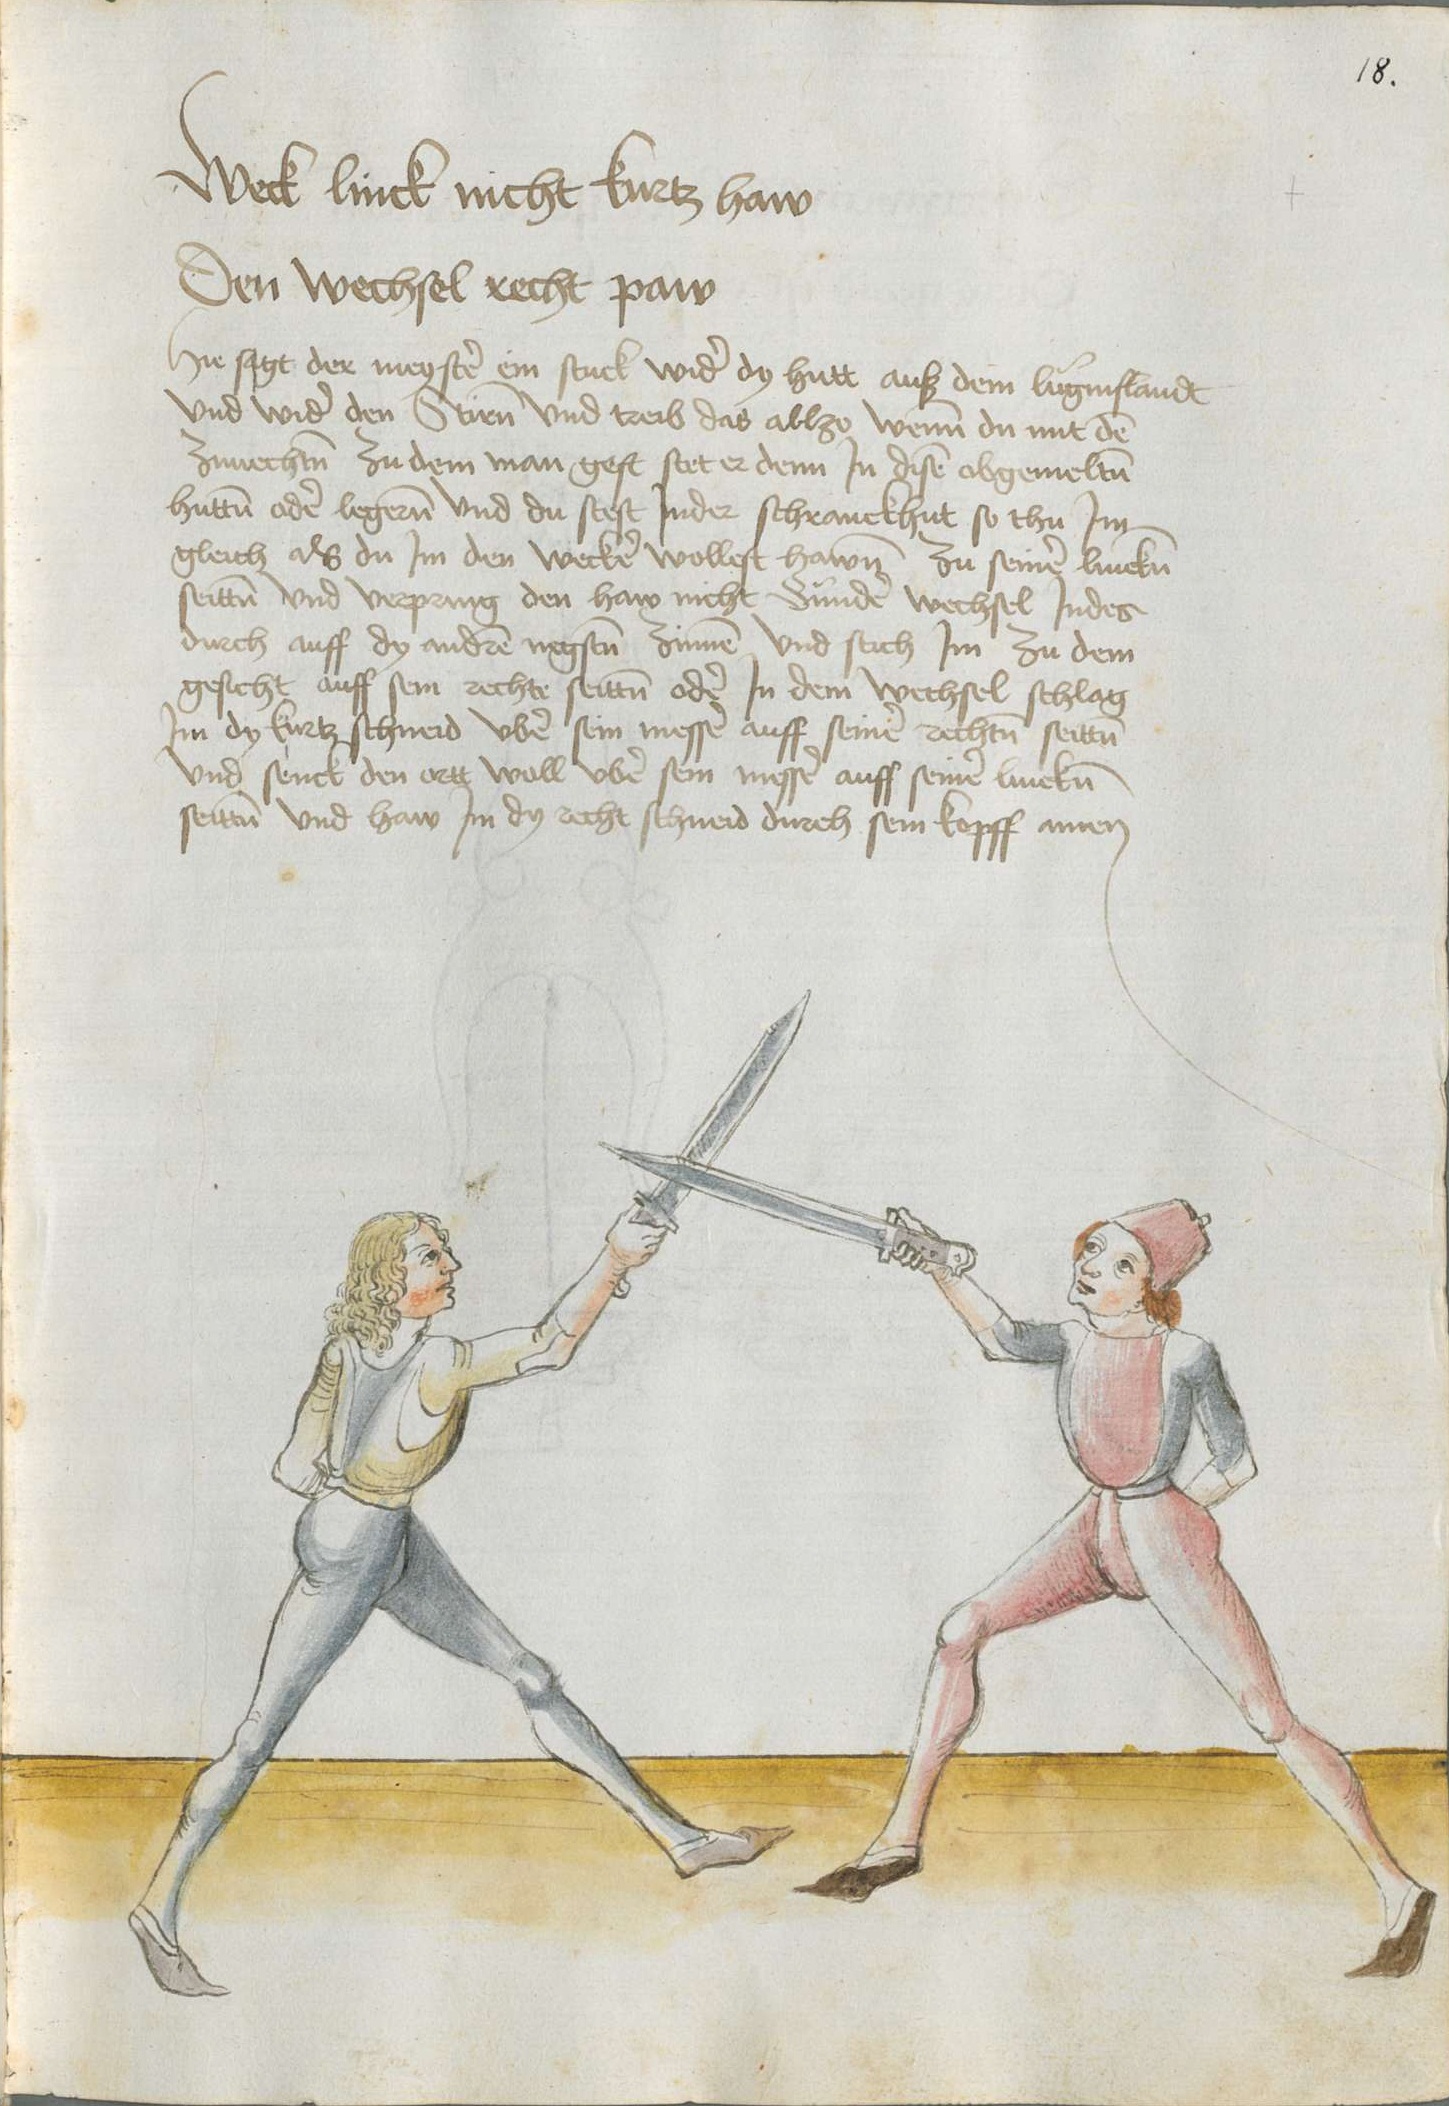 18.
Weck linck nicht kurtz haw
Den Wechsel recht paw
Hie sagt der meystē ein stuck widē dy hutt auß dem luginslandt
Vnd widē den Stirn Vnd treib das allzo wenn du mit dē
Zuuechtn Zu dem man gest stet er denn In disē obgemeltn
huttn odē legern Vnd du stest Inder schranckhut so thu Im
gleich als du Im den weckē wollest hawn Zu seinē linckn
seittn Vnd verpring den haw nicht Sundē wechsel Indes
durch auff dy andrē negstn Zinnē Vnd stich Im Zu dem
gesicht auff sein rechte seittn odē In dem wechsel schlag
Im dy kurtz schneid vbē sein messē auff seinē rechtn seittn
Vnd senck den ortt woll vbē sein messē auff seinē linckn
seittn Vnd haw Im dy recht schneid durch sein kopff amen